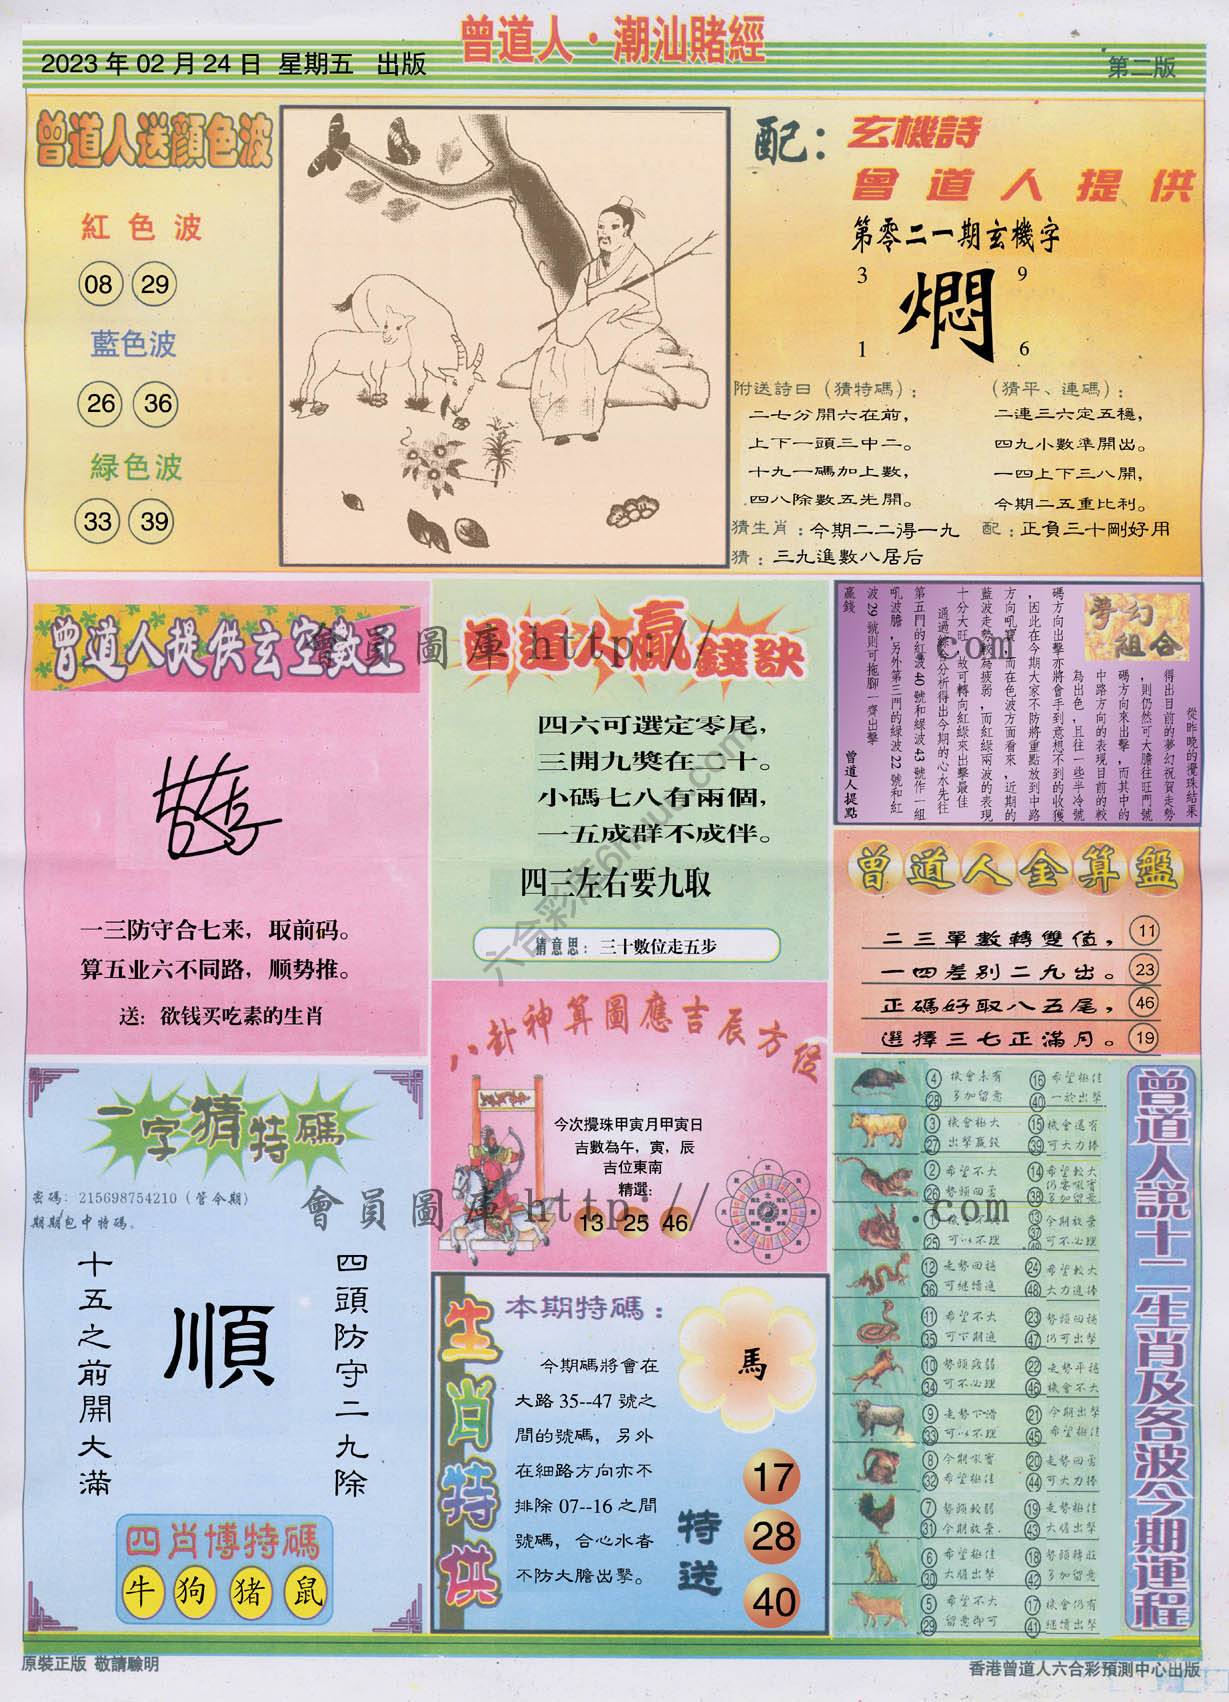 曾道人·潮汕賭經
2023 年 02 月 24 日 星期五 出版
第二版
曾道人送顏色波
紅色波
08 29
藍色波
26 36
緑色波
33 39
配：玄機詩
曾道人提供
第零二一期玄機字
3 9
燜
1 6
附送詩曰（猜特碼）：
二七分開六在前，
上下一頭三中二。
十九一碼加上數，
四八除數五先開。
（猜平、連碼）：
二連三六定五穩，
四九小數準開出。
一四上下三八開，
今期二五重比利。
猜生肖：今期二二得一九
配：正負三十剛好用
猜：三九進數八居后
曾道人提供玄空數王
一三防守合七来，取前码。
算五业六不同路，顺势推。
送：欲钱买吃素的生肖
曾道人贏錢訣
四六可選定零尾，
三開九獎在二十。
小碼七八有兩個，
一五成群不成伴。
四三左右要九取
猜意思：三十數位走五步
夢幻組合
從昨晚的攪珠結果
得出目前的夢幻祝賀走勢
，則仍然可大膽往旺門號
碼方向來出擊，而其中的
中路方向的表現目前的較
為出色，且往一些半冷號
碼方向出擊亦將會手到意想不到的收獲
，因此在今期大家不防將重點放到中路
方向吼寶，而在色波方面看來，近期的
藍波走勢較為疲弱，而紅綠兩波的表現
十分大旺，故可轉向紅綠來出擊最佳
通過綜合分析得出今期的心水先往
第五門的紅波 40 號和緑波 43 號作一組
吼波膽，另外第三門的綠波 22 號和紅
波 29 號則可拖腳一齊出擊
贏錢
曾道人提點
曾道人金算盤
二三單數轉雙值， 11
一四差別二九出。 23
正碼好取八五尾， 46
選擇三七正滿月。 19
八卦神算圖應吉辰方位
今次攪珠甲寅月甲寅日
吉數為午，寅，辰
吉位東南
精選：
13 25 46
一字猜特碼
密碼：215698754210（管今期）
期期包中特碼。
四頭防守二九除
順
十五之前開大滿
四肖博特碼
牛 狗 猪 鼠
生肖特供
本期特碼：
今期碼將會在
大路 35--47 號之
間的號碼，另外
在細路方向亦不
排除 07--16 之間
號碼，合心水者
不防大膽出擊。
馬
特送
17
28
40
曾道人說十二生肖及各波今期運程
4 28 機會未有 多加留意
16 40 希望極佳 一於出擊
3 27 機會極大 出擊贏錢
15 39 機會還有 可大力捧
2 26 希望不大 勢頭回勇
14 38 希望較大 仍要吼實 多加留意
1 25 可以不理
13 37 49 今期放棄 可不必理
12 36 走勢回揚 可繼續追
24 48 希望較大 大力追捧
11 35 希望不大 可下期追
23 47 勢頭回揚 仍可出擊
10 34 勢頭疲弱 可不必理
22 46 走勢平穩 機會不大
9 33 走勢下滑 可以不理
21 45 今期出擊 希望極佳
8 32 今期吼實 希望極佳
20 44 走勢回勇 可大力捧
7 31 勢頭較弱 今期放棄.
19 43 走勢極佳 大膽出擊
6 30 希望極佳 大膽出擊
18 42 勢頭轉旺 多加留意
5 29 希望不大 留意即可
17 41 機會仍有 繼續出擊
會員圖庫 http:// .com
會員圖庫 http:// .com
原裝正版 敬請驗明
香港曾道人六合彩預測中心出版